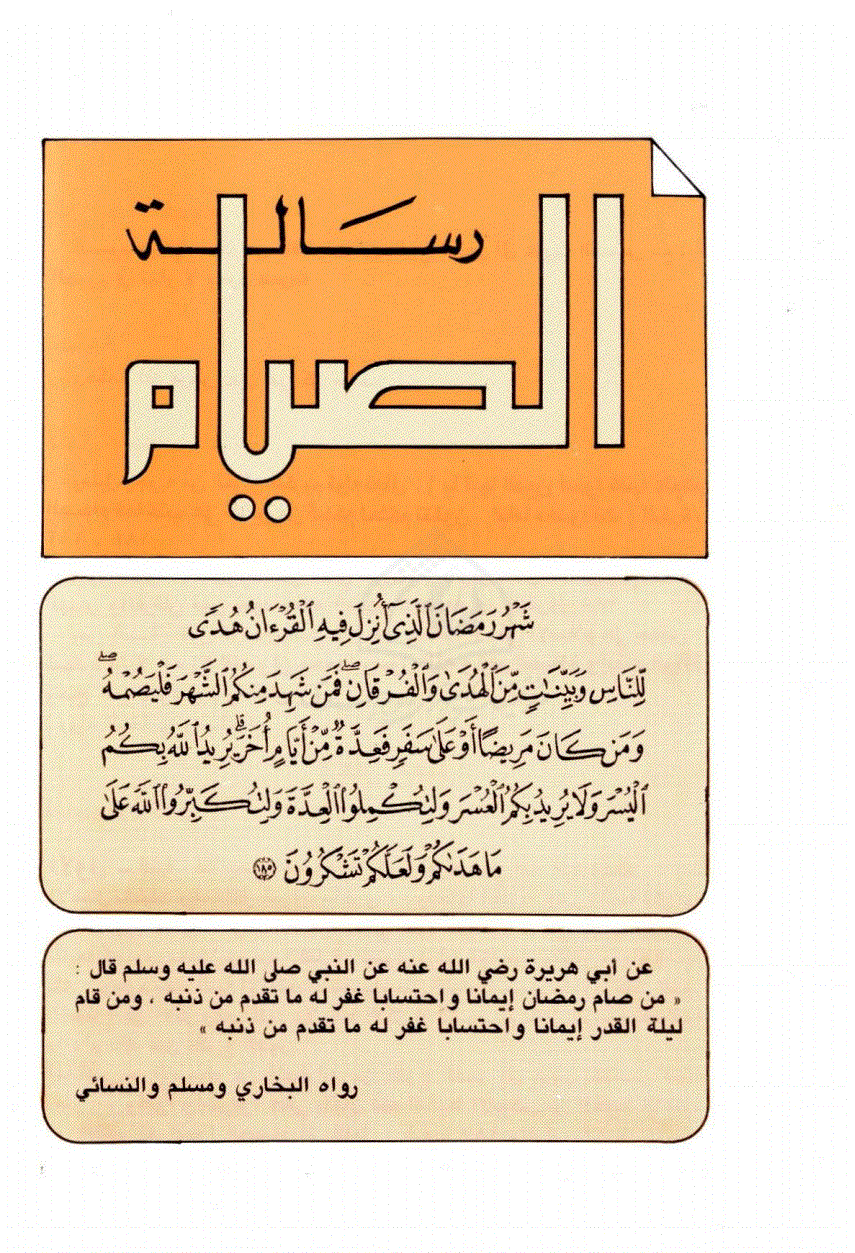 رسالة
الصيام
شَهْرُ رَمَضَانَ ٱلَّذِىٓ أُنزِلَ فِيهِ ٱلْقُرْءَانُ هُدًى
لِّلنَّاسِ وَبَيِّنَٰتٍ مِّنَ ٱلْهُدَىٰ وَٱلْفُرْقَانِۖ فَمَن شَهِدَ مِنكُمُ ٱلشَّهْرَ فَلْيَصُمْهُۖ
وَمَن كَانَ مَرِيضًا أَوْ عَلَىٰ سَفَرٍ فَعِدَّةٌ مِّنْ أَيَّامٍ أُخَرَۗ يُرِيدُ ٱللَّهُ بِكُمُ
ٱلْيُسْرَ وَلَا يُرِيدُ بِكُمُ ٱلْعُسْرَ وَلِتُكْمِلُوا۟ ٱلْعِدَّةَ وَلِتُكَبِّرُوا۟ ٱللَّهَ عَلَىٰ
مَا هَدَىٰكُمْ وَلَعَلَّكُمْ تَشْكُرُونَ ١٨٥
عن أبي هريرة رضي الله عنه عن النبي صلى الله عليه وسلم قال :
« من صام رمضان إيمانا واحتسابا غفر له ما تقدم من ذنبه ، ومن قام
ليلة القدر إيمانا واحتسابا غفر له ما تقدم من ذنبه »
رواه البخاري ومسلم والنسائي